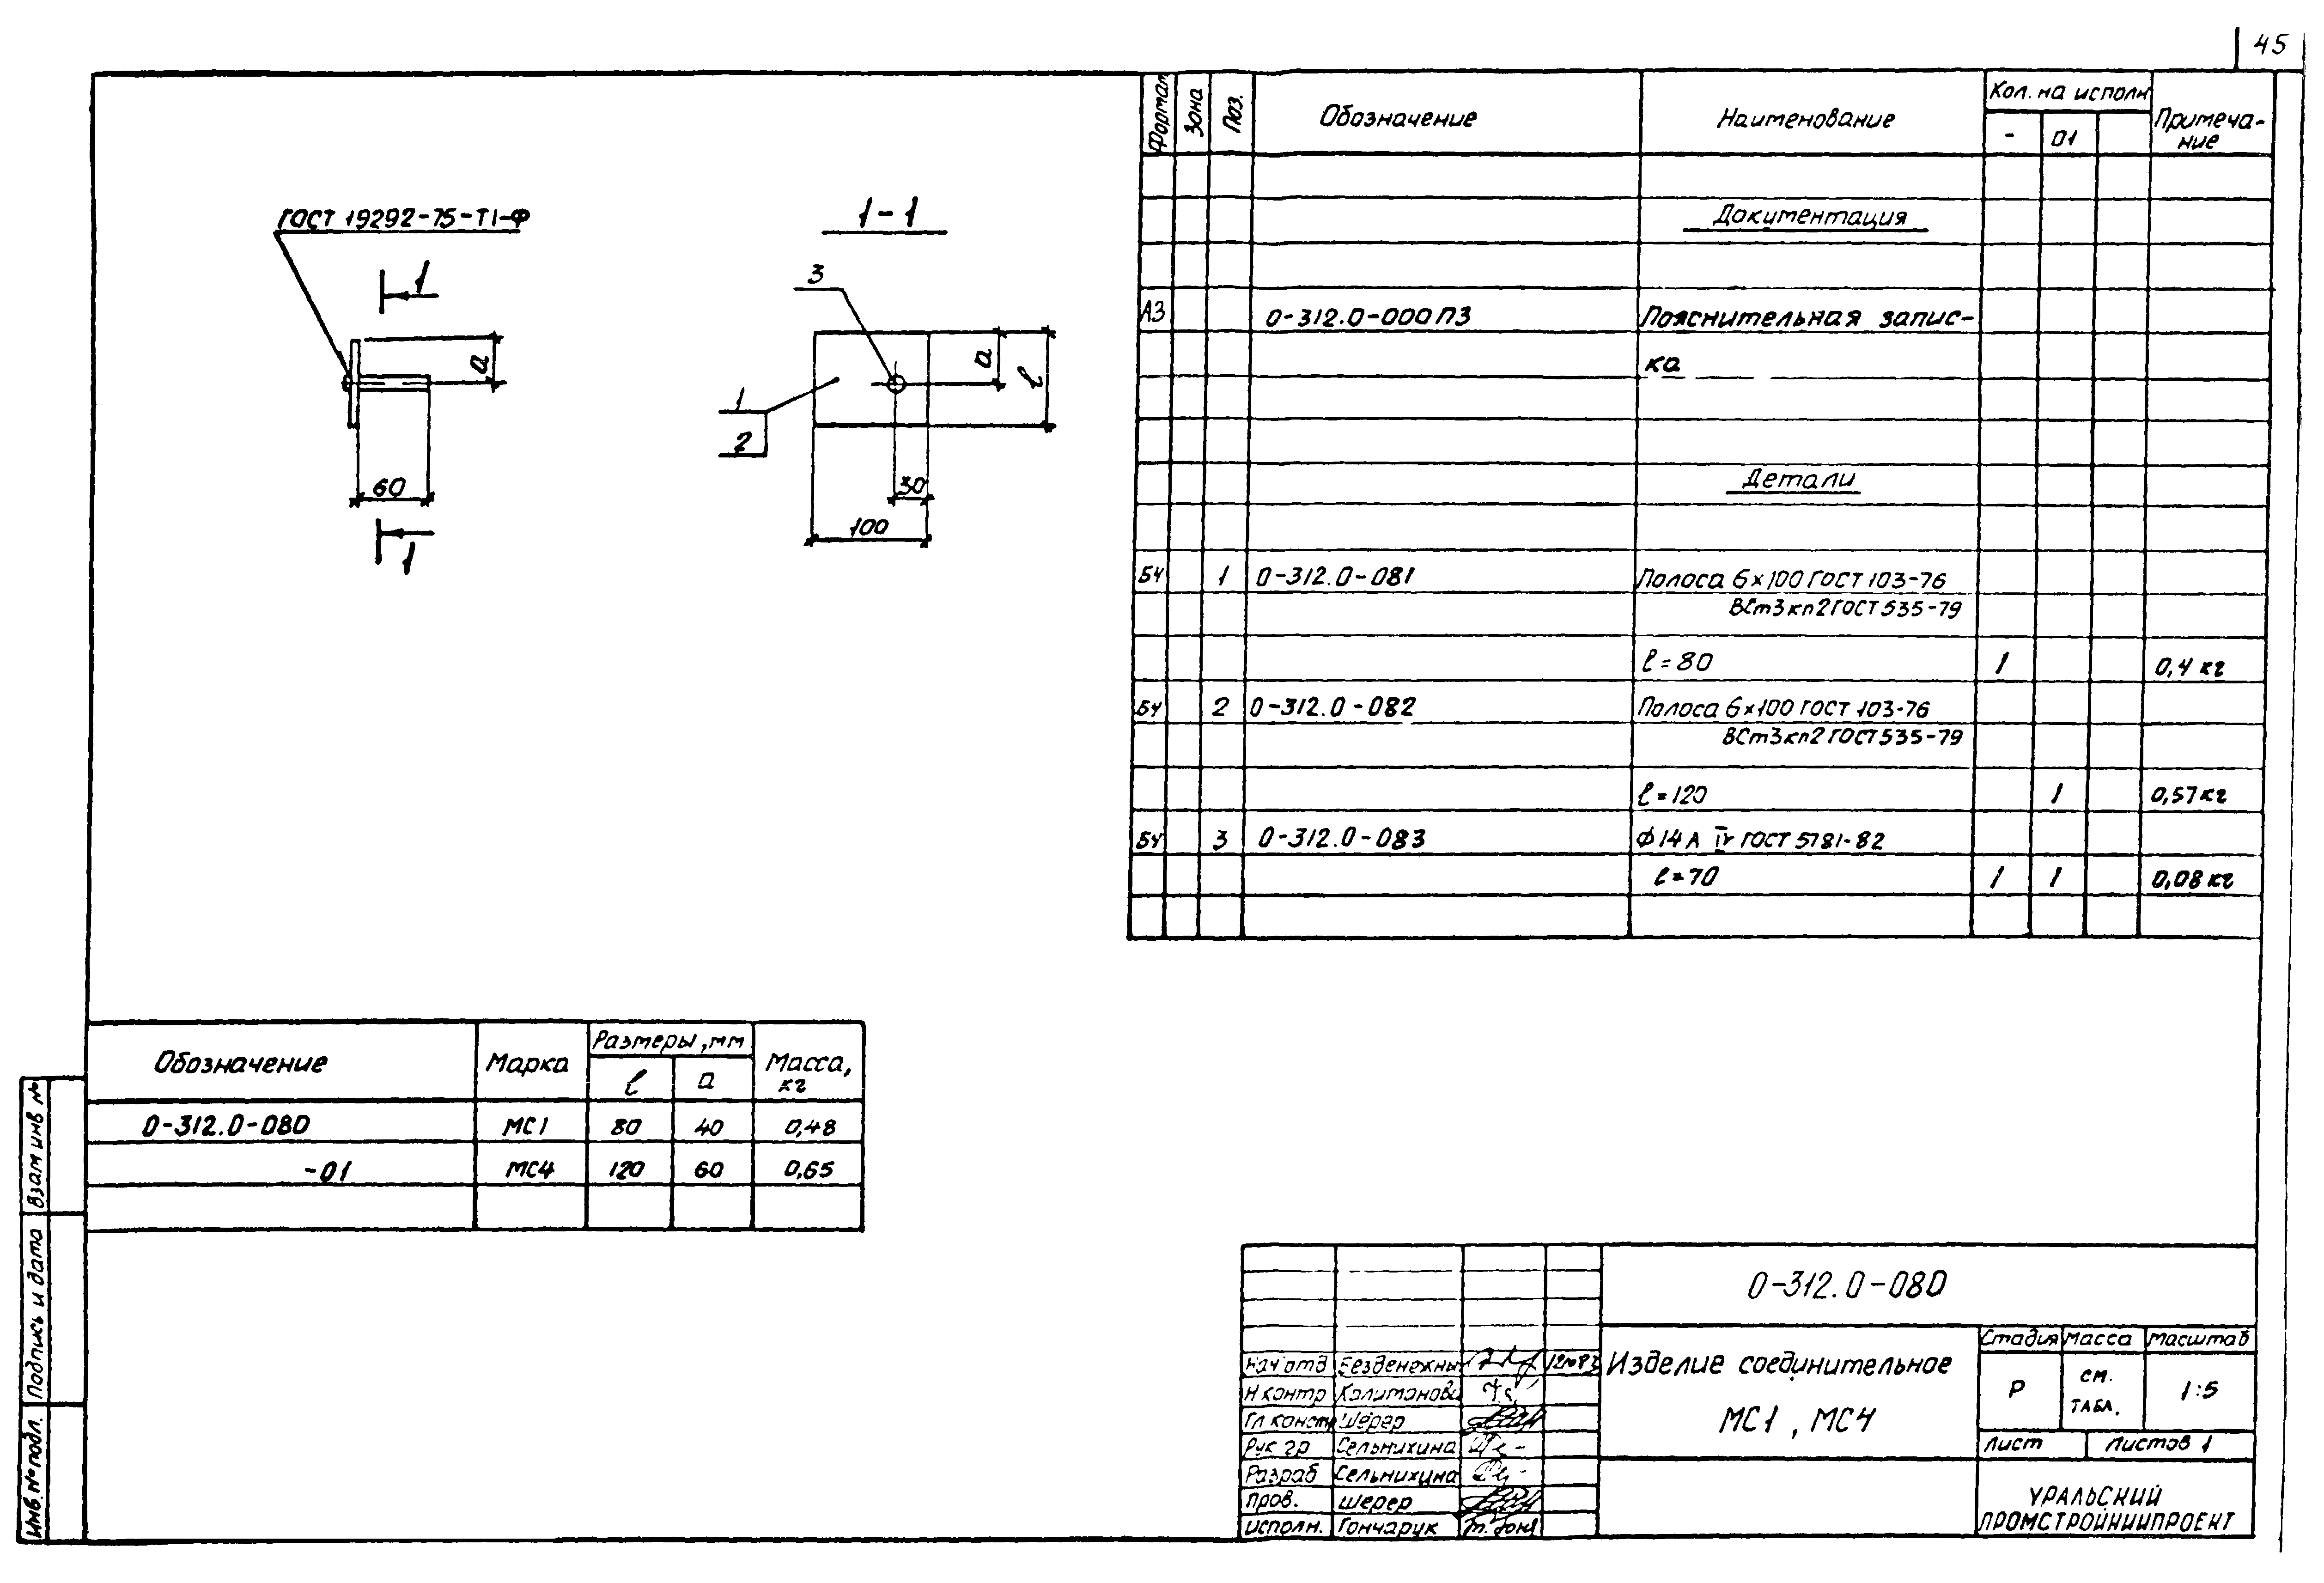 45
ГОСТ 19292-75-Т1-Ф
1
а
60
1
1-1
3
1
2
а
l
30
100
Формат Зона Поз. Обозначение Наименование Кол. на исполн Примеча-
ние
- 01
Документация
А3 0-312.0-000ПЗ Пояснительная запис-
ка
Детали
БЧ 1 0-312.0-081 Полоса 6×100 ГОСТ 103-76
ВСт3кп2 ГОСТ 535-79
l=80 1 0,4 кг
БЧ 2 0-312.0-082 Полоса 6×100 ГОСТ 103-76
ВСт3кп2 ГОСТ 535-79
l=120 1 0,57 кг
БЧ 3 0-312.0-083 Ф14А IV ГОСТ 5781-82
l=70 1 1 0,08 кг
Обозначение Марка Размеры, мм Масса,
кг
l а
0-312.0-080 МС1 80 40 0,48
-01 МС4 120 60 0,65
Взам инв №
Подпись и дата
Инв. № подл.
0-312.0-080
Изделие соединительное
МС1, МС4
Стадия Масса Масштаб
Р см.
ТАБЛ. 1:5
Лист Листов 1
УРАЛЬСКИЙ
ПРОМСТРОЙНИИПРОЕКТ
Нач отд Безденежны
Н контр
Гл констр Шерер
Рук гр Сельнихина
Разраб Сельнихина
Пров. Шерер
Исполн. Гончарук